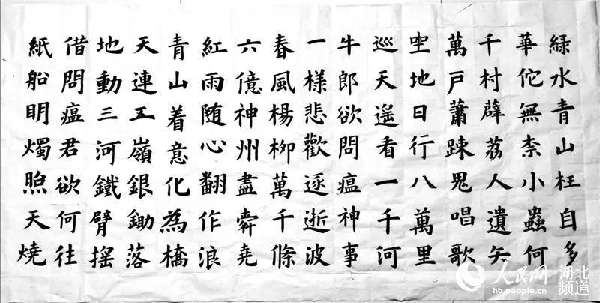 緑水青山枉自多
華佗無柰小蟲何
千村薜荔人遺矢
萬戶蕭踈鬼唱歌
坐地日行八萬里
巡天遥看一千河
牛郎欲問瘟神事
一樣悲歡逐逝波
春風楊柳萬千條
六億神州盡舜堯
紅雨随心翻作浪
青山着意化為橋
天連五嶺銀鋤落
地動三河鐵臂摇
借問瘟君欲何往
紙船明燭照天燒
人民网 湖北频道
hb.people.cn